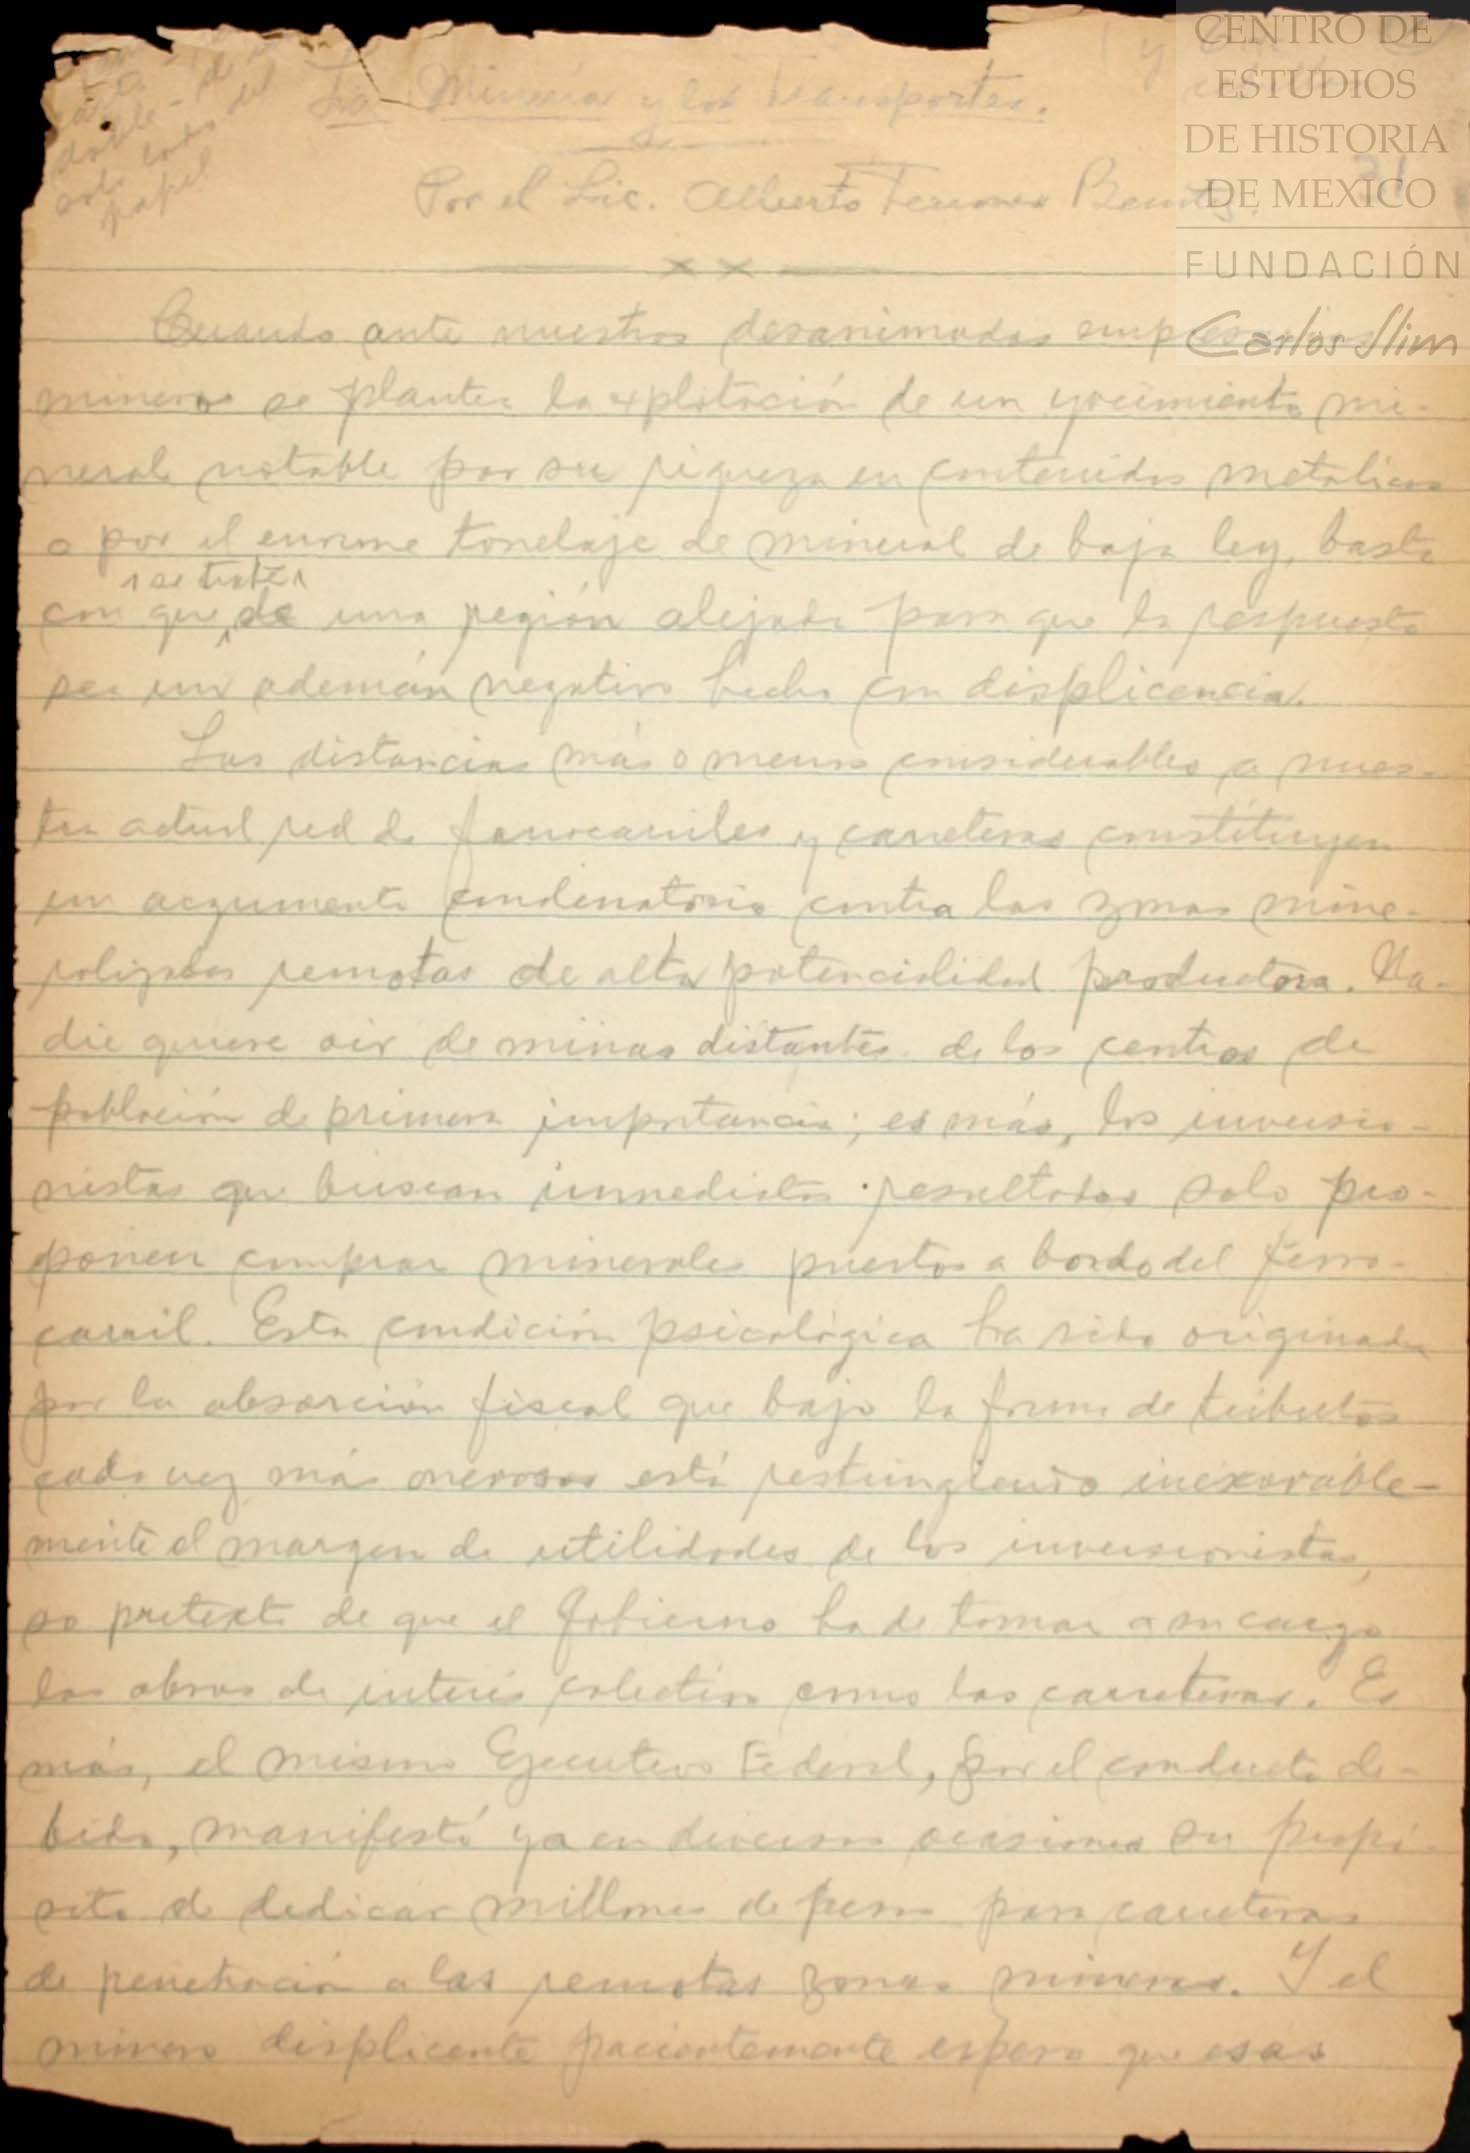 CENTRO DE
ESTUDIOS
DE HISTORIA
DE MEXICO
FUNDACIÓN
Carlos Slim
doble
papel
La Minería y los Transportes.
Por el Lic. Alberto Terrones Benitez.
x x
Cuando ante nuestros desanimados empresarios
mineros se plantea la explotación de un yacimiento mi-
neral notable por su riqueza en contenidos metalicos
o por el enorme tonelaje de mineral de baja ley, basta
con que se trata de una región alejada para que la respuesta
sea un ademán negativo hecho con displicencia.
Las distancias más o menos considerables a nues-
tra actual red de ferrocarriles y carreteras constituyen
un argumento condenatorio contra las zonas mine-
ralizadas remotas de alta potencialidad productora. Na-
die quiere oir de minas distantes de los centros de
población de primera importancia; es más, los inversio-
nistas que buscan inmediatos resultados solo pro-
ponen comprar minerales puestos a bordo del ferro-
carril. Esta condición psicológica ha sido originada
por la absorción fiscal que bajo la forma de tributos
cada vez más onerosos está restringiendo inexorable-
mente el margen de utilidades de los inversionistas,
so pretexto de que el Gobierno ha de tomar a su cargo
las obras de interés colectivo como las carreteras. Es
más, el mismo Ejecutivo Federal, por el conducto de-
bido, manifestó ya en diversas ocasiones su propó-
sito de dedicar millones de pesos para carreteras
de penetración a las remotas zonas mineras. Y el
minero displicente pacientemente espera que esas